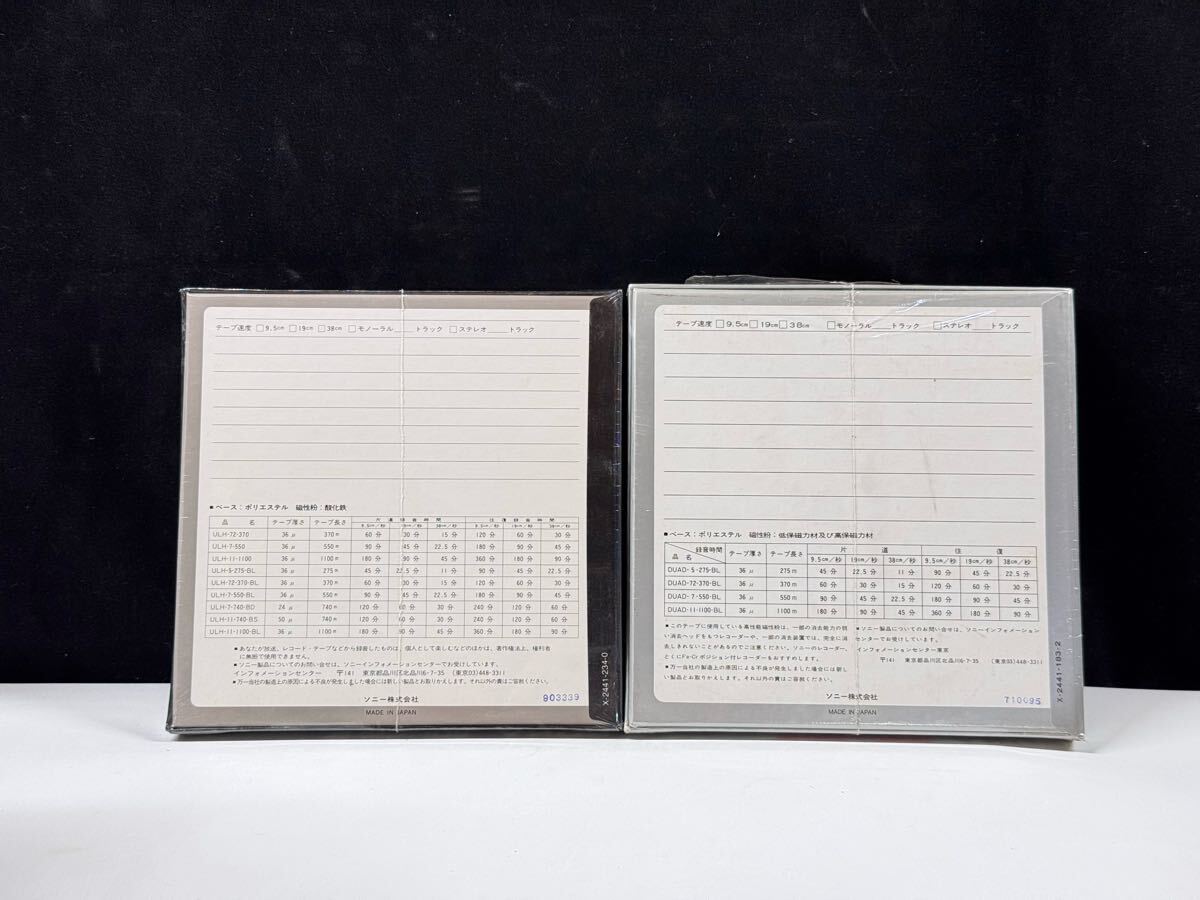 テープ速度 □9.5cm □19cm □38cm □モノーラル____トラック □ステレオ____トラック
■ベース：ポリエステル 磁性粉：酸化鉄
品 名 テープ厚さ テープ長さ 片道録音時間 往復録音時間
9.5cm/秒 19cm/秒 38cm/秒 9.5cm/秒 19cm/秒 38cm/秒
ULH-72-370 36μ 370m 60分 30分 15分 120分 60分 30分
ULH-7-550 36μ 550m 90分 45分 22.5分 180分 90分 45分
ULH-11-1100 36μ 1100m 180分 90分 45分 360分 180分 90分
ULH-5-275-BL 36μ 275m 45分 22.5分 11分 90分 45分 22.5分
ULH-72-370-BL 36μ 370m 60分 30分 15分 120分 60分 30分
ULH-7-550-BL 36μ 550m 90分 45分 22.5分 180分 90分 45分
ULH-7-740-BD 24μ 740m 120分 60分 30分 240分 120分 60分
ULH-11-740-BS 50μ 740m 120分 60分 30分 240分 120分 60分
ULH-11-1100-BL 36μ 1100m 180分 90分 45分 360分 180分 90分
■あなたが放送、レコード・テープなどから録音したものは、個人として楽しむなどのほかは、著作権法上、権利者
に無断で使用できません。
■ソニー製品についてのお問い合せは、ソニーインフォメーションセンターでお受けしています。
インフォメーションセンター 〒141 東京都品川区北品川6-7-35 (東京03)448-3311
■万一当社の製造上の原因による不良が発生しました場合には新しい製品とお取りかえします。それ以外の責はご容赦ください。
ソニー株式会社
903339
MADE IN JAPAN
X-2441-234-0
テープ速度 □9.5cm □19cm □38cm □モノーラル____トラック □ステレオ____トラック
■ベース：ポリエステル 磁性粉：低保磁力材及び高保磁力材
録音時間 品名 テープ厚さ テープ長さ 片道 往復
9.5cm/秒 19cm/秒 38cm/秒 9.5cm/秒 19cm/秒 38cm/秒
DUAD-5-275-BL 36μ 275m 45分 22.5分 11分 90分 45分 22.5分
DUAD-72-370-BL 36μ 370m 60分 30分 15分 120分 60分 30分
DUAD-7-550-BL 36μ 550m 90分 45分 22.5分 180分 90分 45分
DUAD-11-1100-BL 36μ 1100m 180分 90分 45分 360分 180分 90分
■このテープに使用している高性能磁性粉は、一部の消去能力の弱
い消去ヘッドをもつレコーダーや、一部の消去装置では、完全に消
去しきれないことがあるのでご注意ください。ソニーのレコーダー、
とくにFe-Crポジション付レコーダーをおすすめします。
■万一当社の製造上の原因による不良が発生しました場合には新し
い製品とお取りかえします。それ以外の責はご容赦ください。
■ソニー製品についてのお問い合せは、ソニーインフォメーション
センターでお受けしています。
インフォメーションセンター東京
〒141 東京都品川区北品川6-7-35 (東京03)448-3311
ソニー株式会社
710095
MADE IN JAPAN
X-2441-183-2